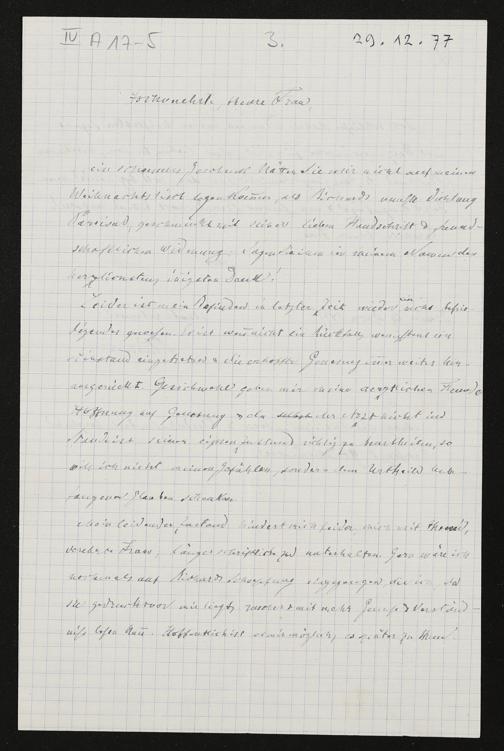 IV A 17-5 3. 29.12.77
Hochverehrte, theure Frau,
ein schöneres Geschenk hätten Sie mir nicht auf meinen
Weihnachtstisch legen können, als Richards neueste Dichtung
Parsival, geschmückt mit seiner lieben Handschrift & freund-
schaftlichen Widmung. Sagen Sie ihm in meinem Namen den
herzlichsten, innigsten Dank!
Leider ist mein Befinden in letzter Zeit wieder ein nicht befrie-
digendes gewesen. Es ist wenn nicht ein Rückfall, wenigstens ein
Stillstand eingetreten & die Genesung immer weiter hin-
ausgerückt. Gleichwohl geben mir meine aerztlichen Freunde
Hoffnung auf Genesung & da selbst der Arzt nicht im
Stande ist seinen eignen Zustand richtig zu beurtheilen, so
will ich nicht meinen Gefühlen, sondern dem Urtheile Unbe-
fangener Glauben schenken.
Mein leidender Zustand hindert mich leider, mich mit Ihnen,
verehrte Frau, länger schriftlich zu unterhalten. Gern wäre ich
nochmals auf Richards Schoepfung eingegangen, die ich, da
sie gedruckt vor mir liegt, rascher & mit mehr Genuss & Verständ-
niss lesen kann. Hoffentlich ist es mir möglich, es später zu thun.